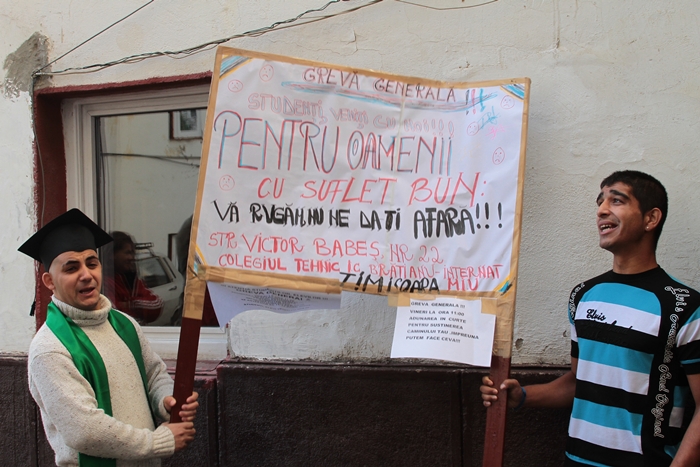 GREVA GENERALA!!!
STUDENTI, VENITI CU NOI!!!!
PENTRU OAMENII
CU SUFLET BUN:
VĂ RUGĂM, NU NE DATI AFARA!!!
STR. VICTOR BABEȘ, NR 22
COLEGIUL TEHNIC I.C. BRĂTIANU-INTERNAT
TIMISOARA MTU
GREVA GENERALA !!
VINERI LA ORA 11:00
ADUNAREA IN CURTE
PENTRU SUSTINEREA
CAMINULUI TAU .IMPREUNA
PUTEM FACE CEVA!!
Elvis
Elvis
Original